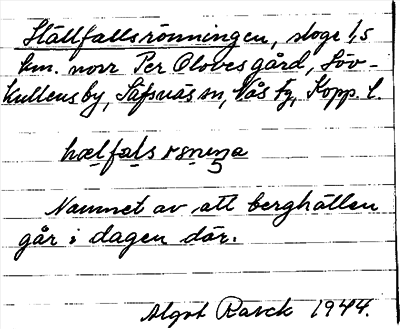 Hällfallsrönningen, skoge 1,5
km. norr Per Olovesgård, Löv-
kullens by, Säfsnäs sn, Nås fg, Kopp. l.
hælfals rsnuŋa
Namnet av att berghällen
går i dagen där.
Algot Rasck 1944.